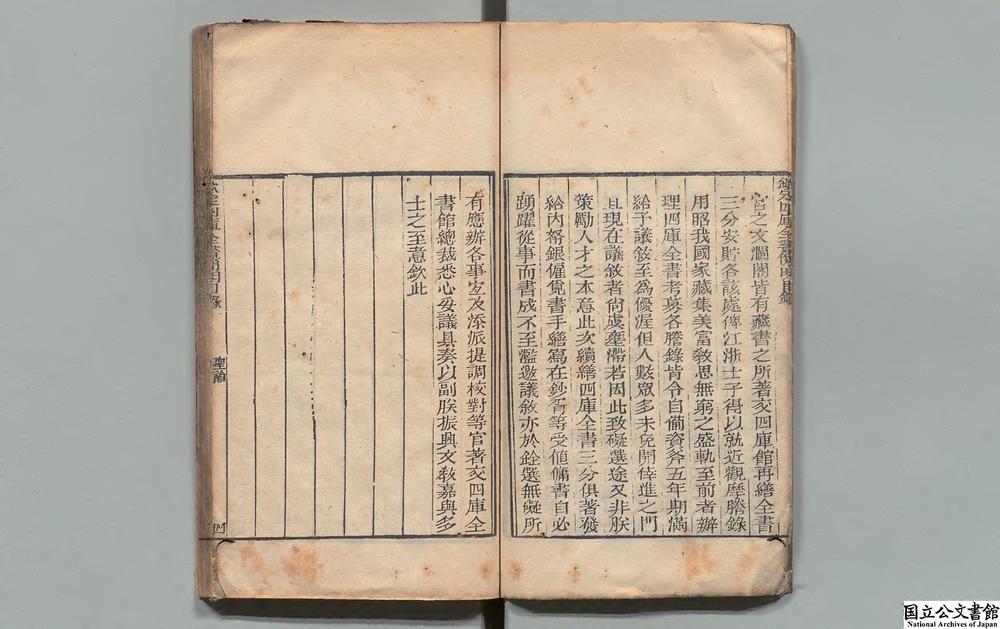 宮之文瀾閣皆有藏書之所著交四庫館再繕全書
三分安貯各該處俾江浙士子得以就近觀摩謄錄
用昭我國家藏集美富敎思無窮之盛軌至前者辦
理四庫全書考募各謄錄皆令自備資斧五年期滿
給予議敘至爲優渥但人數眾多未免開倖進之門
且現在議敘者尙虞壅滯若因此致礙選途又非朕
策勵人才之本意此次續繕四庫全書三分俱著發
給內帑銀僱覓書手繕寫在鈔胥等受値傭書自必
踴躍從事而書成不至濫邀議敘亦於銓選無礙所
有應辦各事宜及添派提調校對等官著交四庫全
書館總裁悉心妥議具奏以副朕振興文敎嘉與多
士之至意欽此
欽定四庫全書簡明目錄
聖諭
四
欽定四庫全書簡明目錄
国立公文書館
National Archives of Japan